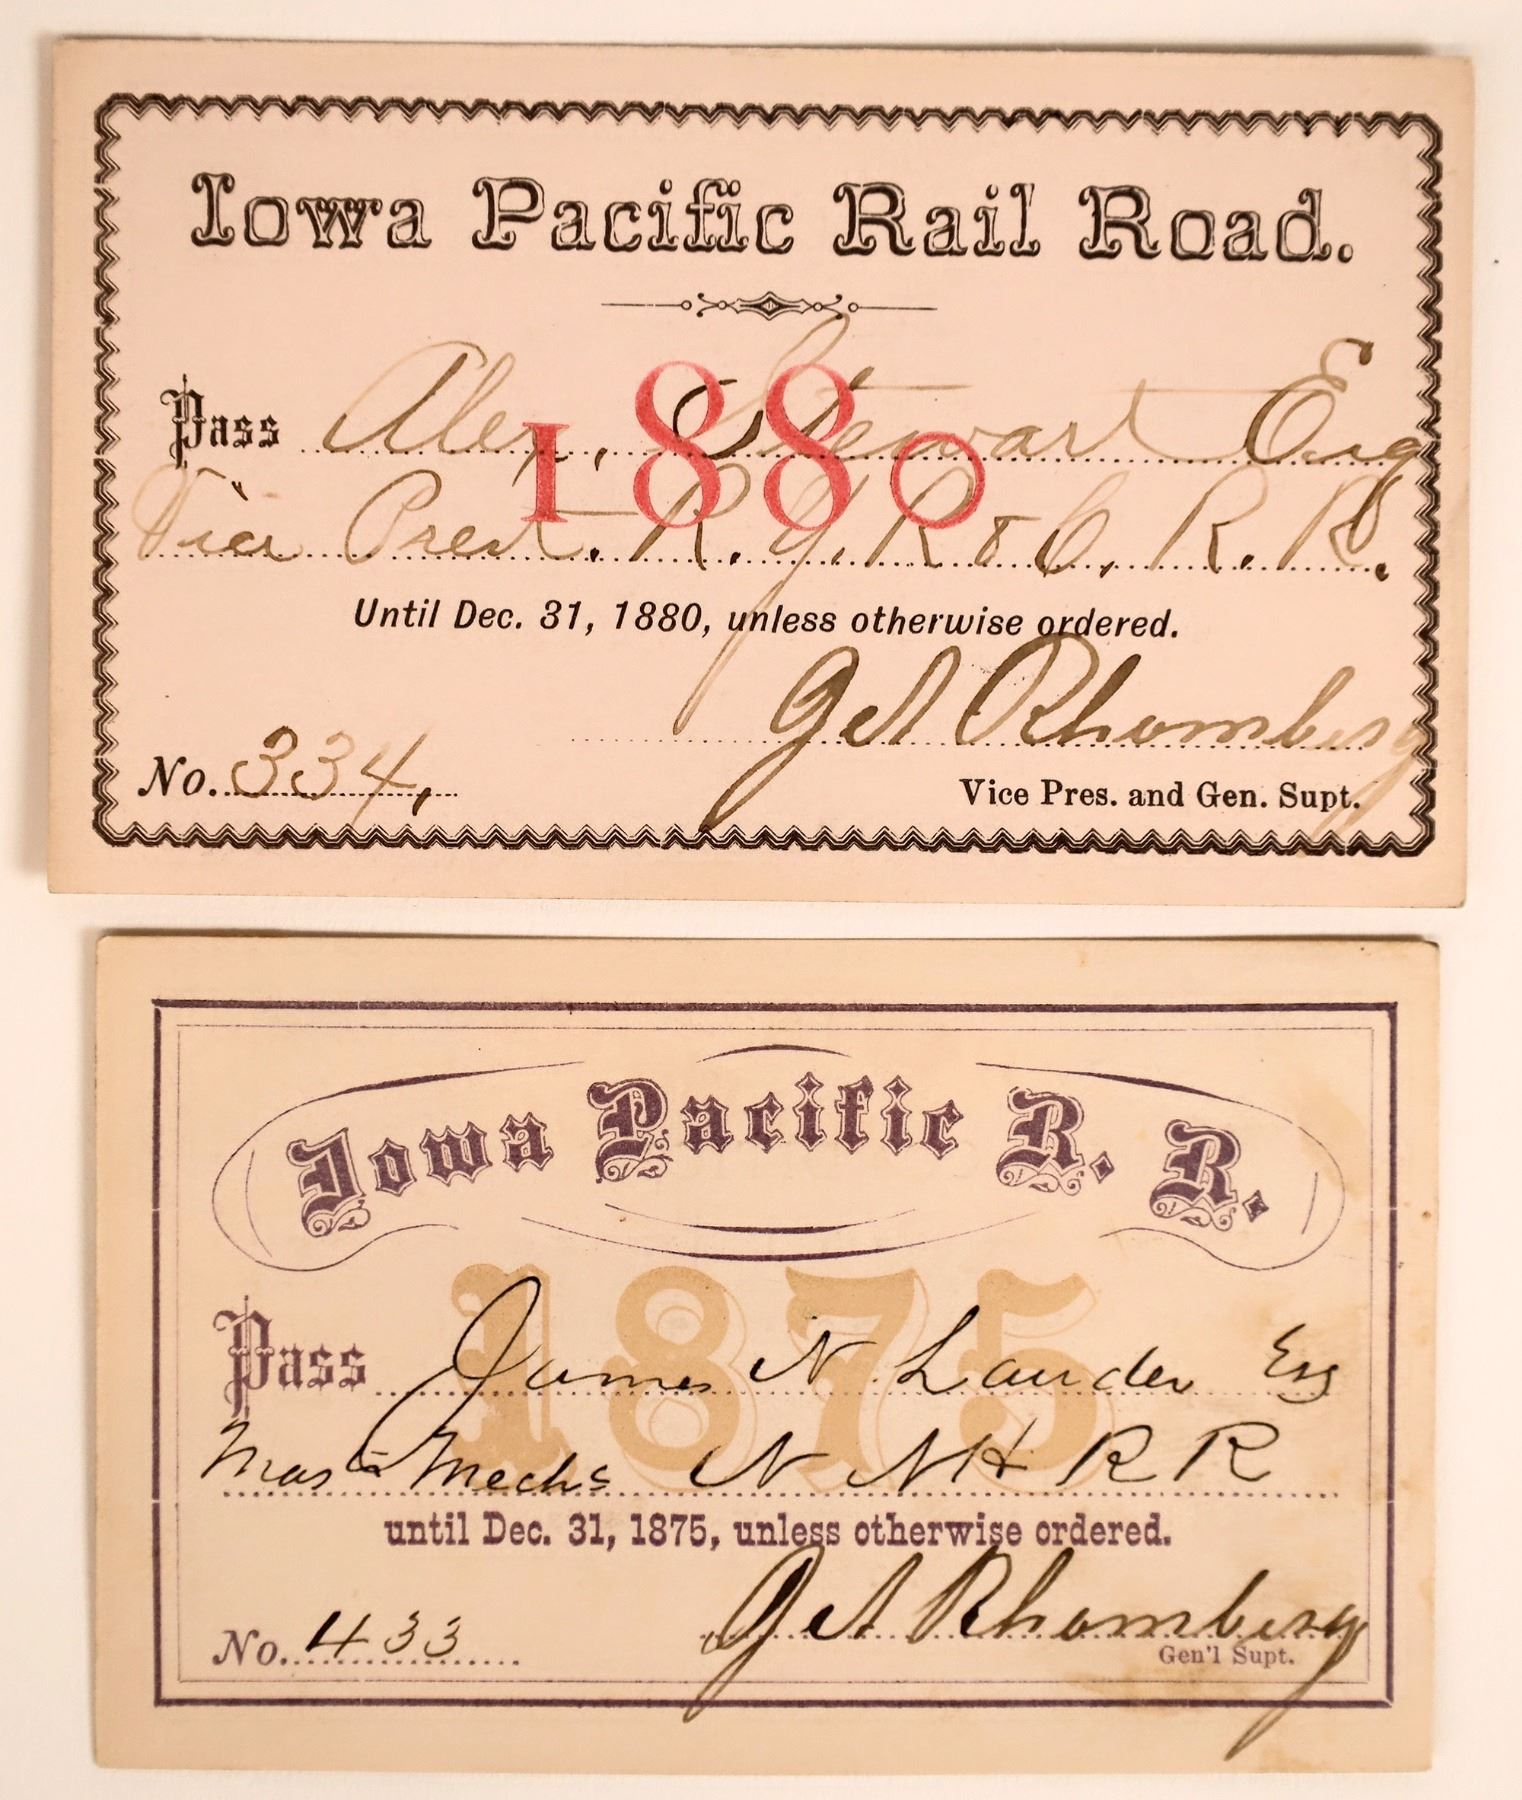 Iowa Pacific Rail Road.
1880
Pass Alex. Stewart Esq
Vice Prest. R. Y. R & C. R. R.
Until Dec. 31, 1880, unless otherwise ordered.
Rhomberg
No. 334, Vice Pres. and Gen. Supt.
Iowa Pacific R. R.
1875
Pass James N Lauder Esq
Mas Mechc N N H R R
until Dec. 31, 1875, unless otherwise ordered.
Rhomberg
No. 433 Gen'l Supt.